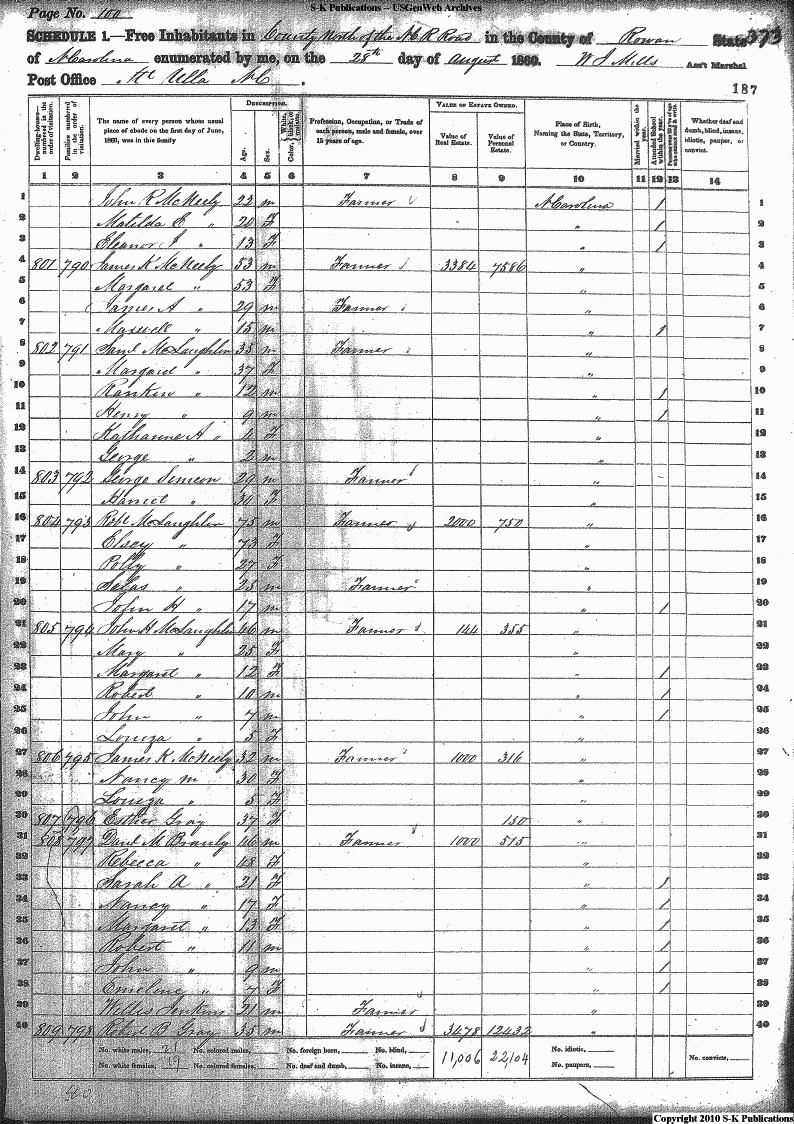 S-K Publications – USGenWeb Archives
Page No. 100
SCHEDULE 1.—Free Inhabitants in County North of the N C R Road in the County of Rowan State 373
of N Carolina enumerated by me, on the 28th day of August 1860. W S Mills Ass't Marshal
Post Office Mt Ulla N C
187
DESCRIPTION. VALUE OF ESTATE OWNED.
Dwelling-houses—numbered in the order of visitation. Families numbered in the order of visitation. The name of every person whose usual place of abode on the first day of June, 1860, was in this family Age. Sex. Color, White, black, or mulatto. Profession, Occupation, or Trade of each person, male and female, over 15 years of age. Value of Real Estate. Value of Personal Estate. Place of Birth, Naming the State, Territory, or Country. Married within the year. Attended School within the year. Persons over 20 y'rs of age who cannot read & write. Whether deaf and dumb, blind, insane, idiotic, pauper, or convict.
1 2 3 4 5 6 7 8 9 10 11 12 13 14
1 John R McNeely 22 m Farmer N Carolina / 1
2 Matilda E " 20 F " / 2
3 Eleanor J " 13 F " / 3
4 801 790 James K McNeely 53 m Farmer 3384 7586 " 4
5 Margaret " 53 F " 5
6 James A " 29 m Farmer " 6
7 Maxwell " 15 m " / 7
8 802 791 Saml McLaughlin 35 m Farmer " 8
9 Margaret " 37 F " 9
10 Rankin " 12 m " / 10
11 Henry " 9 m " / 11
12 Katharine A " 4 F " 12
13 George " 2 m " 13
14 803 792 George Simeon 29 m Farmer " 14
15 Harriet " 30 F " 15
16 804 793 Robt McLaughlin 75 m Farmer 2000 750 " 16
17 Elsey " 73 F " 17
18 Polly " 27 F " 18
19 Silas " 25 m Farmer " 19
20 John H " 17 m " / 20
21 805 794 John H McLaughlin 46 m Farmer 144 355 " 21
22 Mary " 25 F " 22
23 Margaret " 12 F " / 23
24 Robert " 10 m " / 24
25 John " 7 m " / 25
26 Louiza " 5 F " 26
27 806 795 James K McNeely 32 m Farmer 1000 316 " 27
28 Nancy m " 30 F " 28
29 Louiza " 5 F " 29
30 807 796 Esther Gray 37 F 150 " 30
31 808 797 David M Brauly 46 m Farmer 1000 515 " 31
32 Rebecca " 48 F " 32
33 Sarah A " 21 F " / 33
34 Nancy " 17 F " / 34
35 Margaret " 13 F " / 35
36 Robert " 11 m " / 36
37 John " 9 m " / 37
38 Emeline " 7 F " / 38
39 Willis Jenkins 21 m Farmer " 39
40 809 798 Robert B Gray 35 m Farmer 3478 12432 " 40
No. white males, 21 No. colored males, No. foreign born, No. blind, 11,006 22,104 No. idiotic,
No. white females, 19 No. colored females, No. deaf and dumb, No. insane, No. paupers, No. convicts,
40
Copyright 2010 S-K Publications